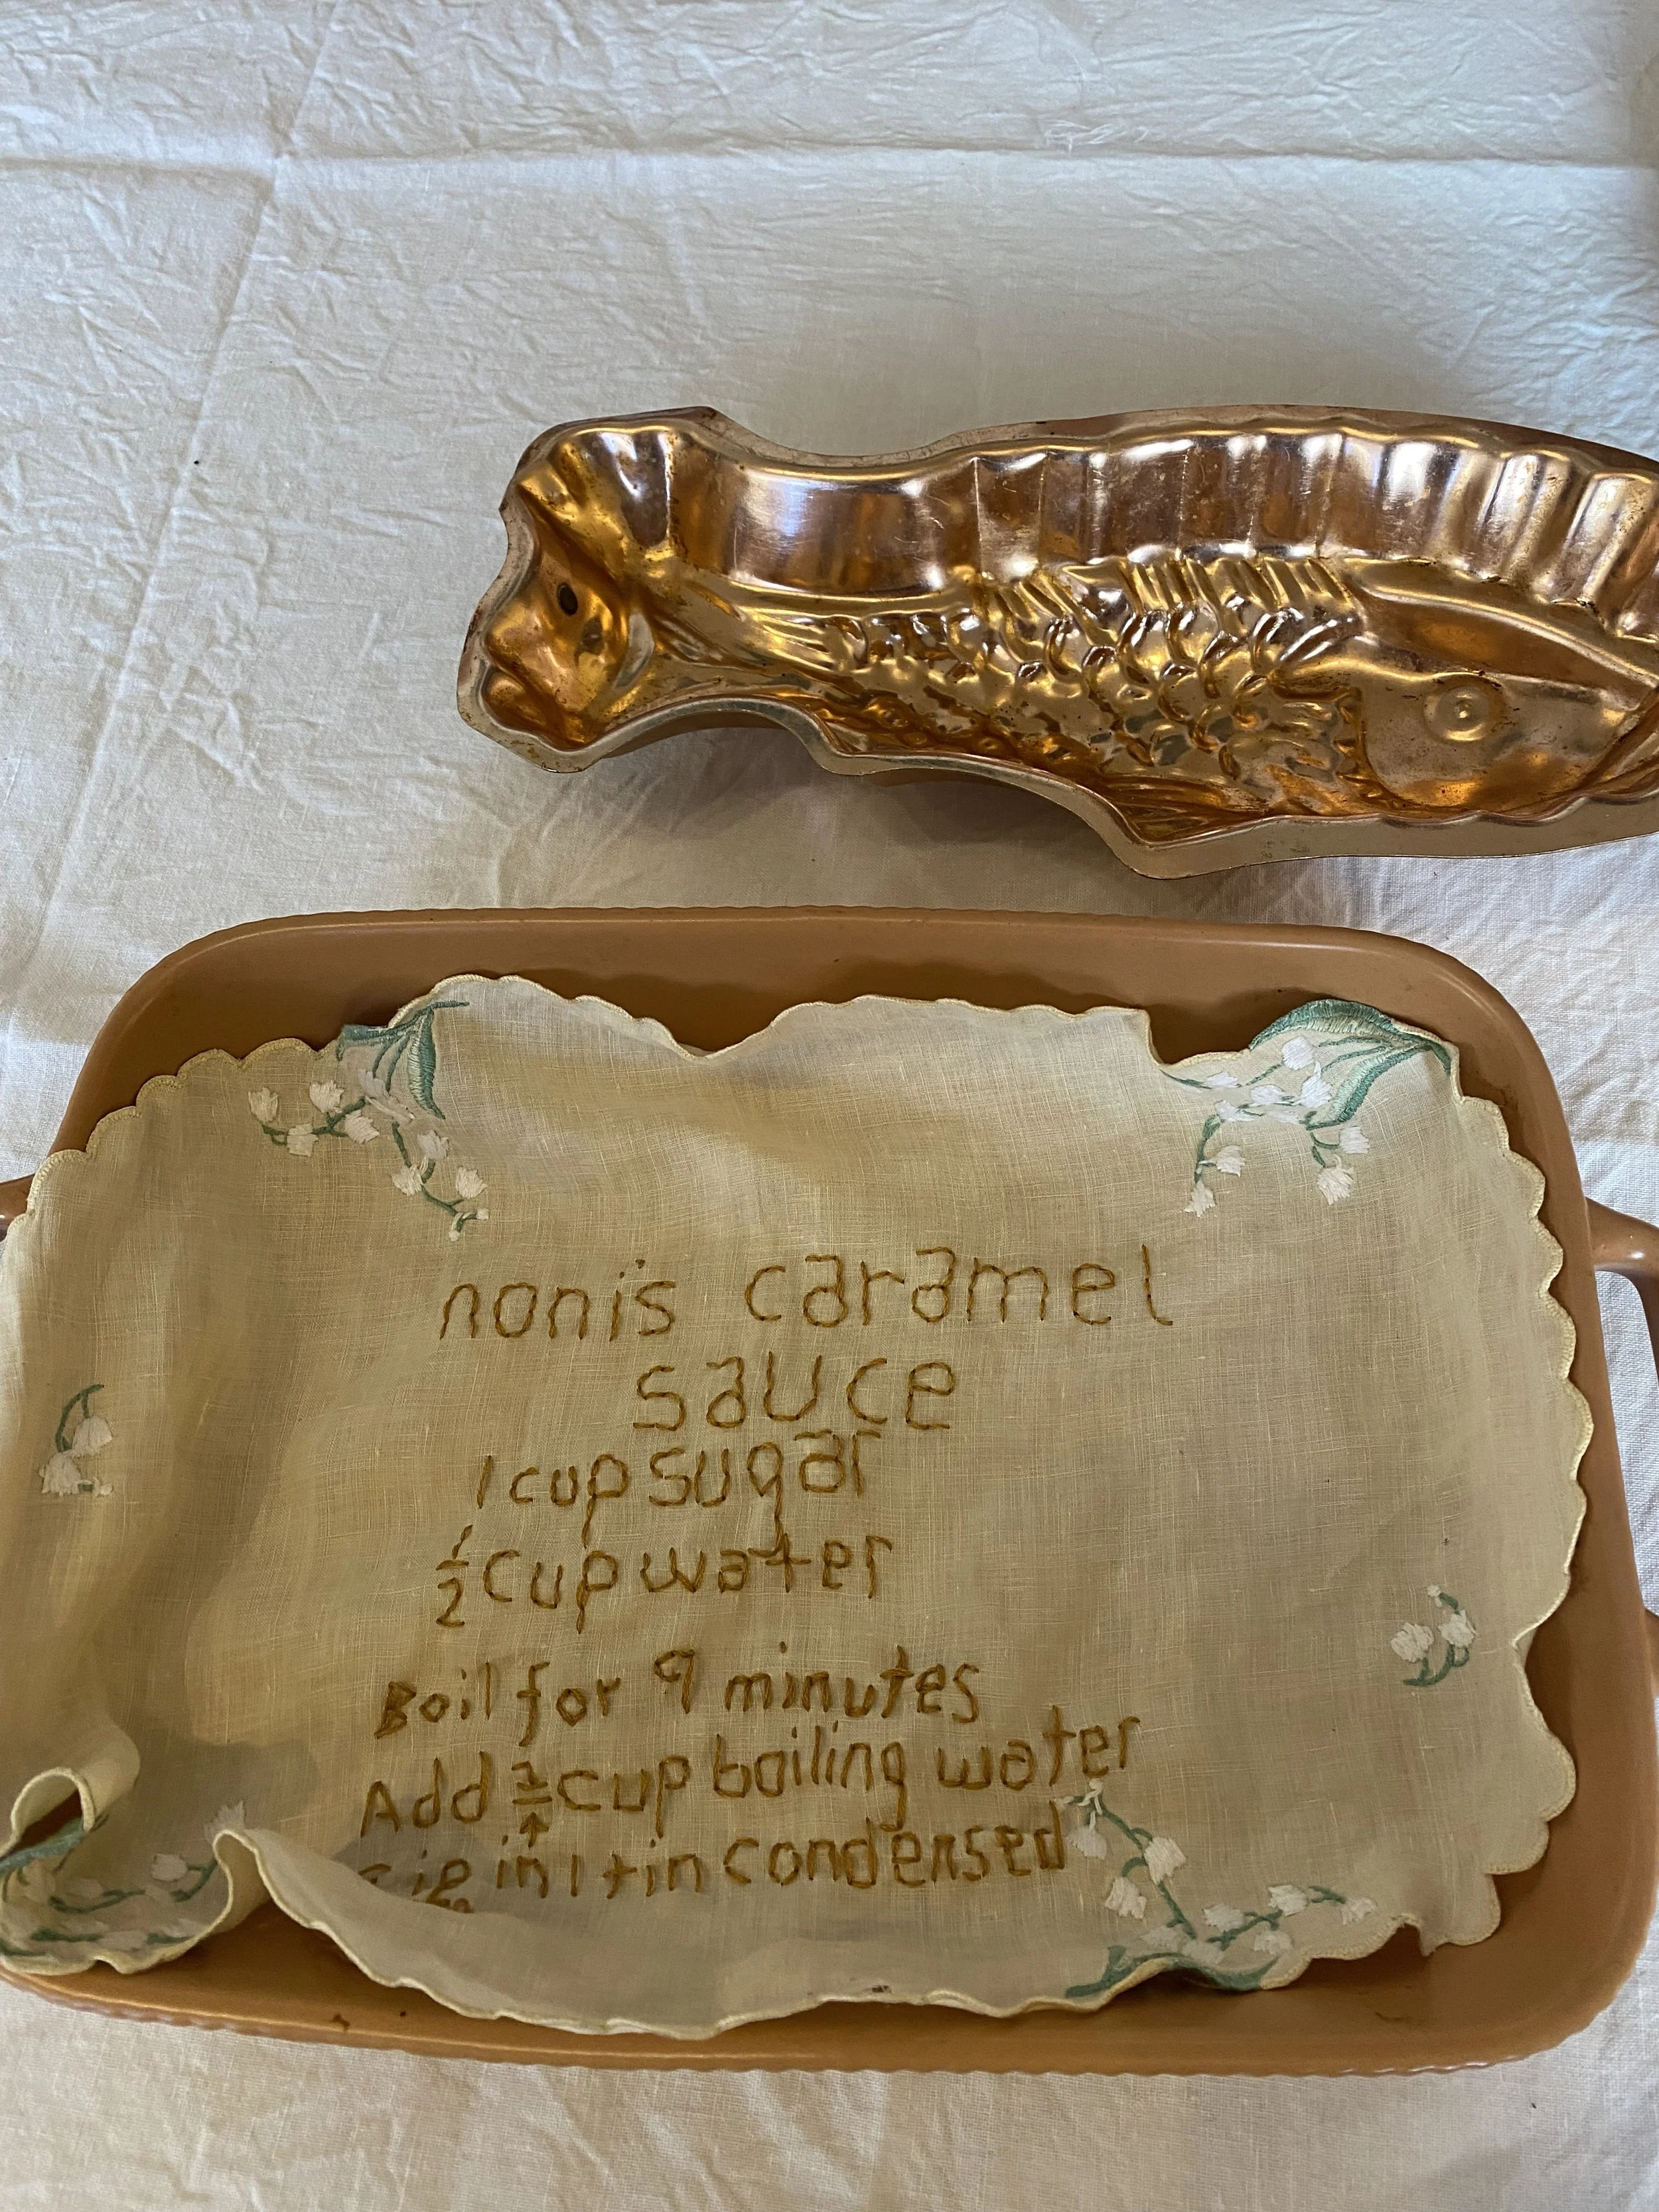 noni's caramel
sauce
1 cup sugar
½ cup water
Boil for 9 minutes
Add cup boiling water
in 1 tin condensed